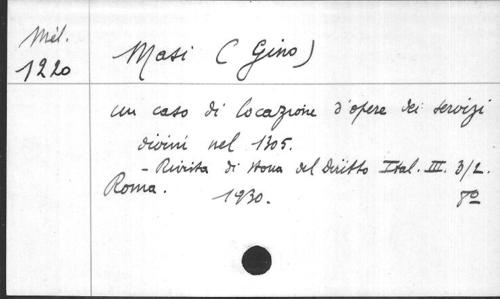 Mél.
1220
Masi (Gino)
un caso di locazione d'opere dei servizi
divini nel 1305.
- Rivista di storia del Diritto Ital. III. 3/2.
Roma. 1930. 8º